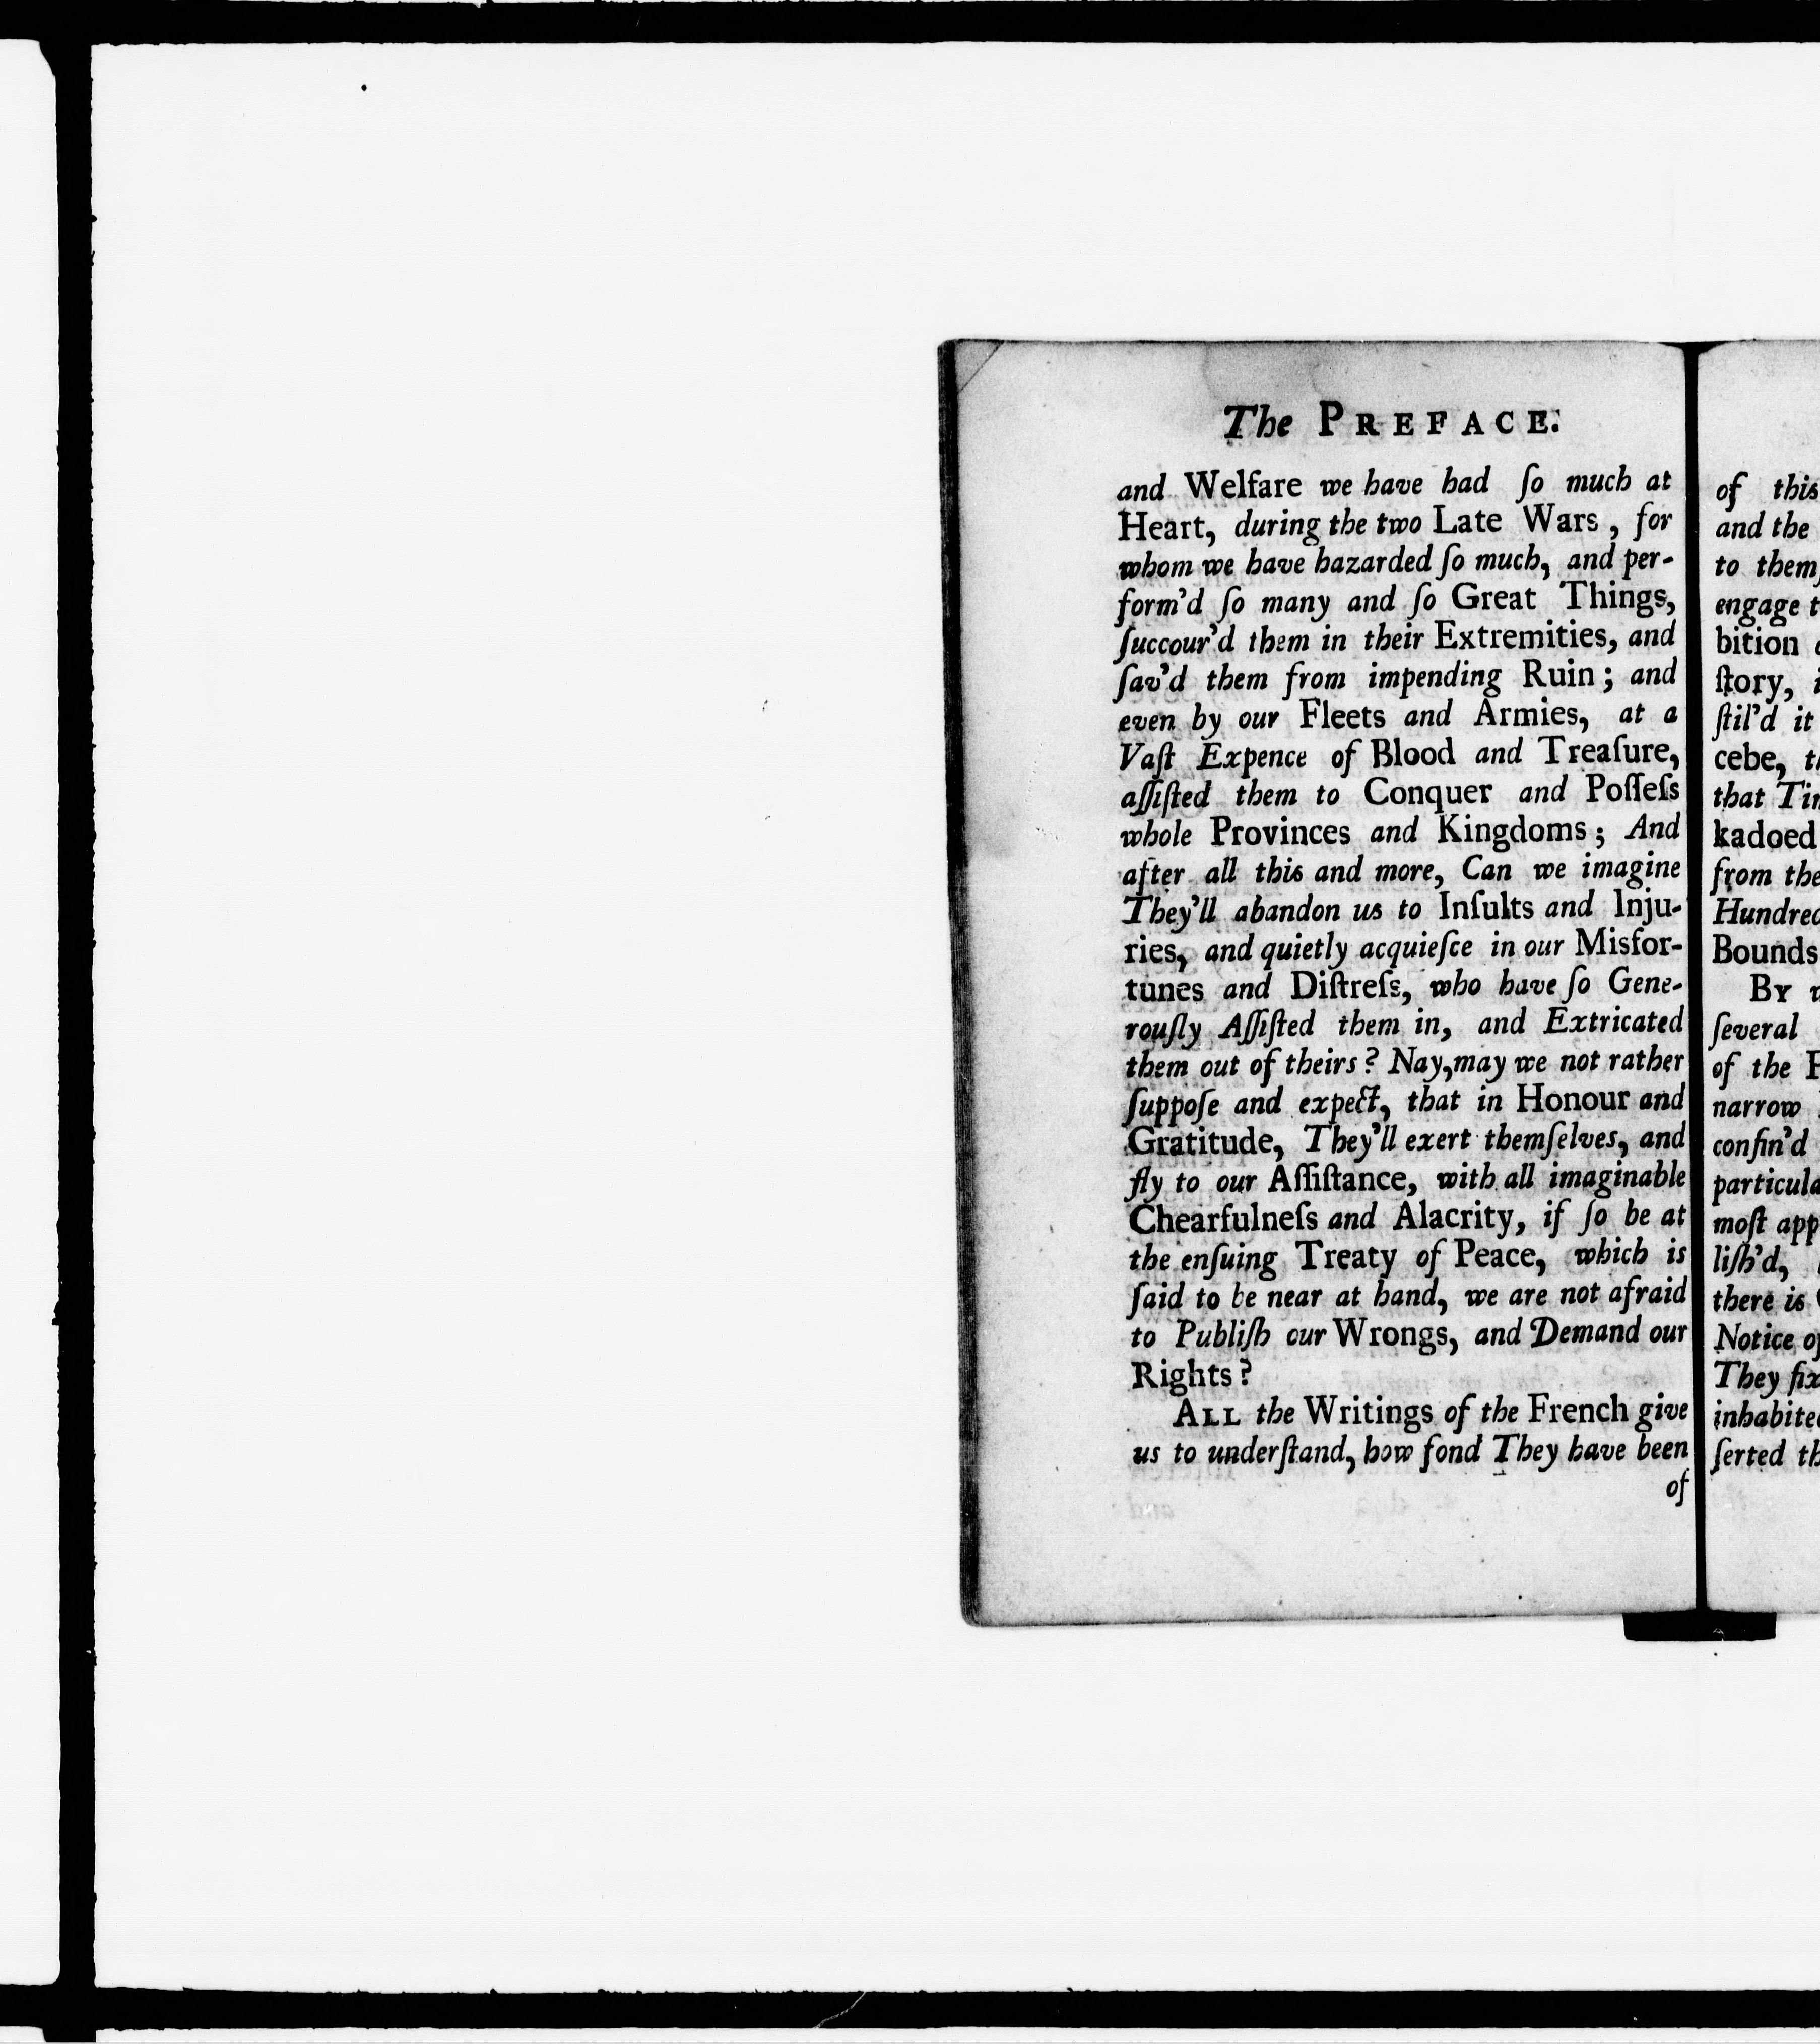 The PREFACE.
and Welfare we have had ſo much at
Heart, during the two Late Wars, for
whom we have hazarded ſo much, and per-
form'd ſo many and ſo Great Things,
ſuccour'd them in their Extremities, and
ſav'd them from impending Ruin; and
even by our Fleets and Armies, at a
Vaſt Expence of Blood and Treaſure,
aſſiſted them to Conquer and Poſſeſs
whole Provinces and Kingdoms; And
after all this and more, Can we imagine
They'll abandon us to Inſults and Inju-
ries, and quietly acquieſce in our Misfor-
tunes and Diſtreſs, who have ſo Gene-
rouſly Aſſiſted them in, and Extricated
them out of theirs? Nay, may we not rather
ſuppoſe and expect, that in Honour and
Gratitude, They'll exert themſelves, and
fly to our Aſſiſtance, with all imaginable
Chearfulneſs and Alacrity, if ſo be at
the enſuing Treaty of Peace, which is
ſaid to be near at hand, we are not afraid
to Publiſh our Wrongs, and Demand our
Rights?
ALL the Writings of the French give
us to underſtand, how fond They have been
of
of this
and the
to them,
engage
bition
ſtory,
ſtil'd it
cebe,
that
kadoed
from the
Bounds
BY
ſeveral
of the
narrow
confin'd
moſt
liſh'd,
there is
Notice
They